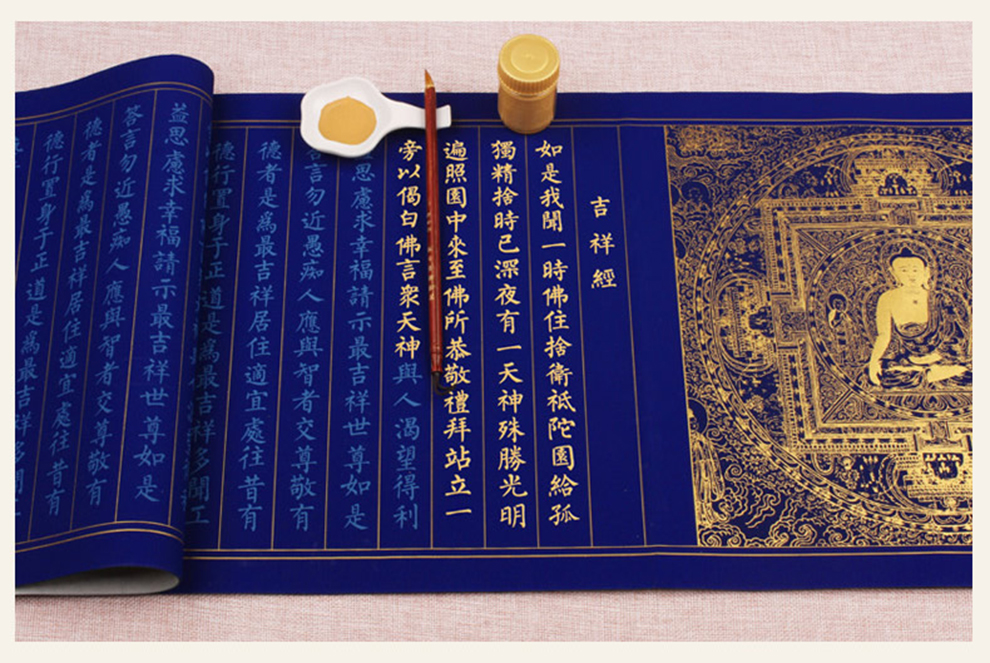 吉祥經
如是我聞一時佛住捨衛祇陀園給孤
獨精捨時已深夜有一天神殊勝光明
遍照園中來至佛所恭敬禮拜站立一
旁以偈白佛言衆天神與人渴望得利
思慮求幸福請示最吉祥世尊如是
言勿近愚痴人應與智者交尊敬有
德者是爲最吉祥居住適宜處往昔有
德行置身于正道是爲最吉祥多聞工
益思慮求幸福請示最吉祥世尊如是
答言勿近愚痴人應與智者交尊敬有
德者是爲最吉祥居住適宜處往昔有
德行置身于正道是爲最吉祥多聞